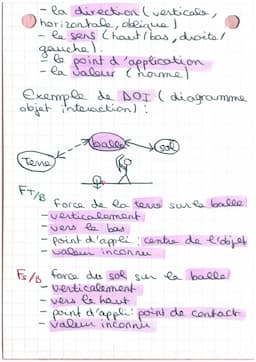 - la direction (verticale,
horizontale, oblique)
- le sens (haut/bas, droite/
gauche).
- le point d'application
- la valeur (norme)
Exemple de DOI (diagramme
objet interaction) :
balle
sol
Terre
FT/B
Force de la terre sur la balle
- verticalement
- vers le bas
- point d'appli : centre de l'objet
- valeur inconnu
Fs/B force du sol sur la balle
- verticalement
- vers le haut
- point d'appli : point de contact
- valeur inconnu